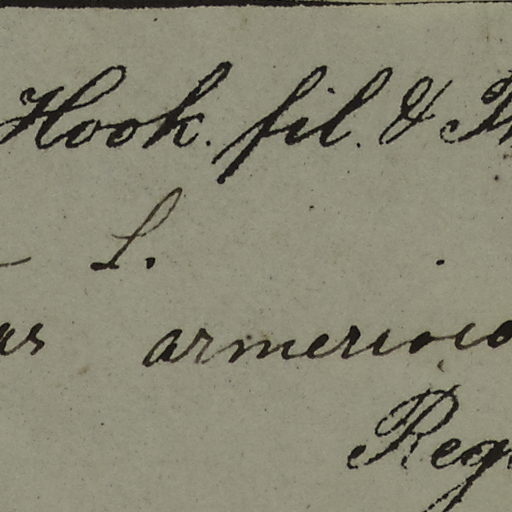 Hook. fil. & Th
L.
us armerioid
Reg